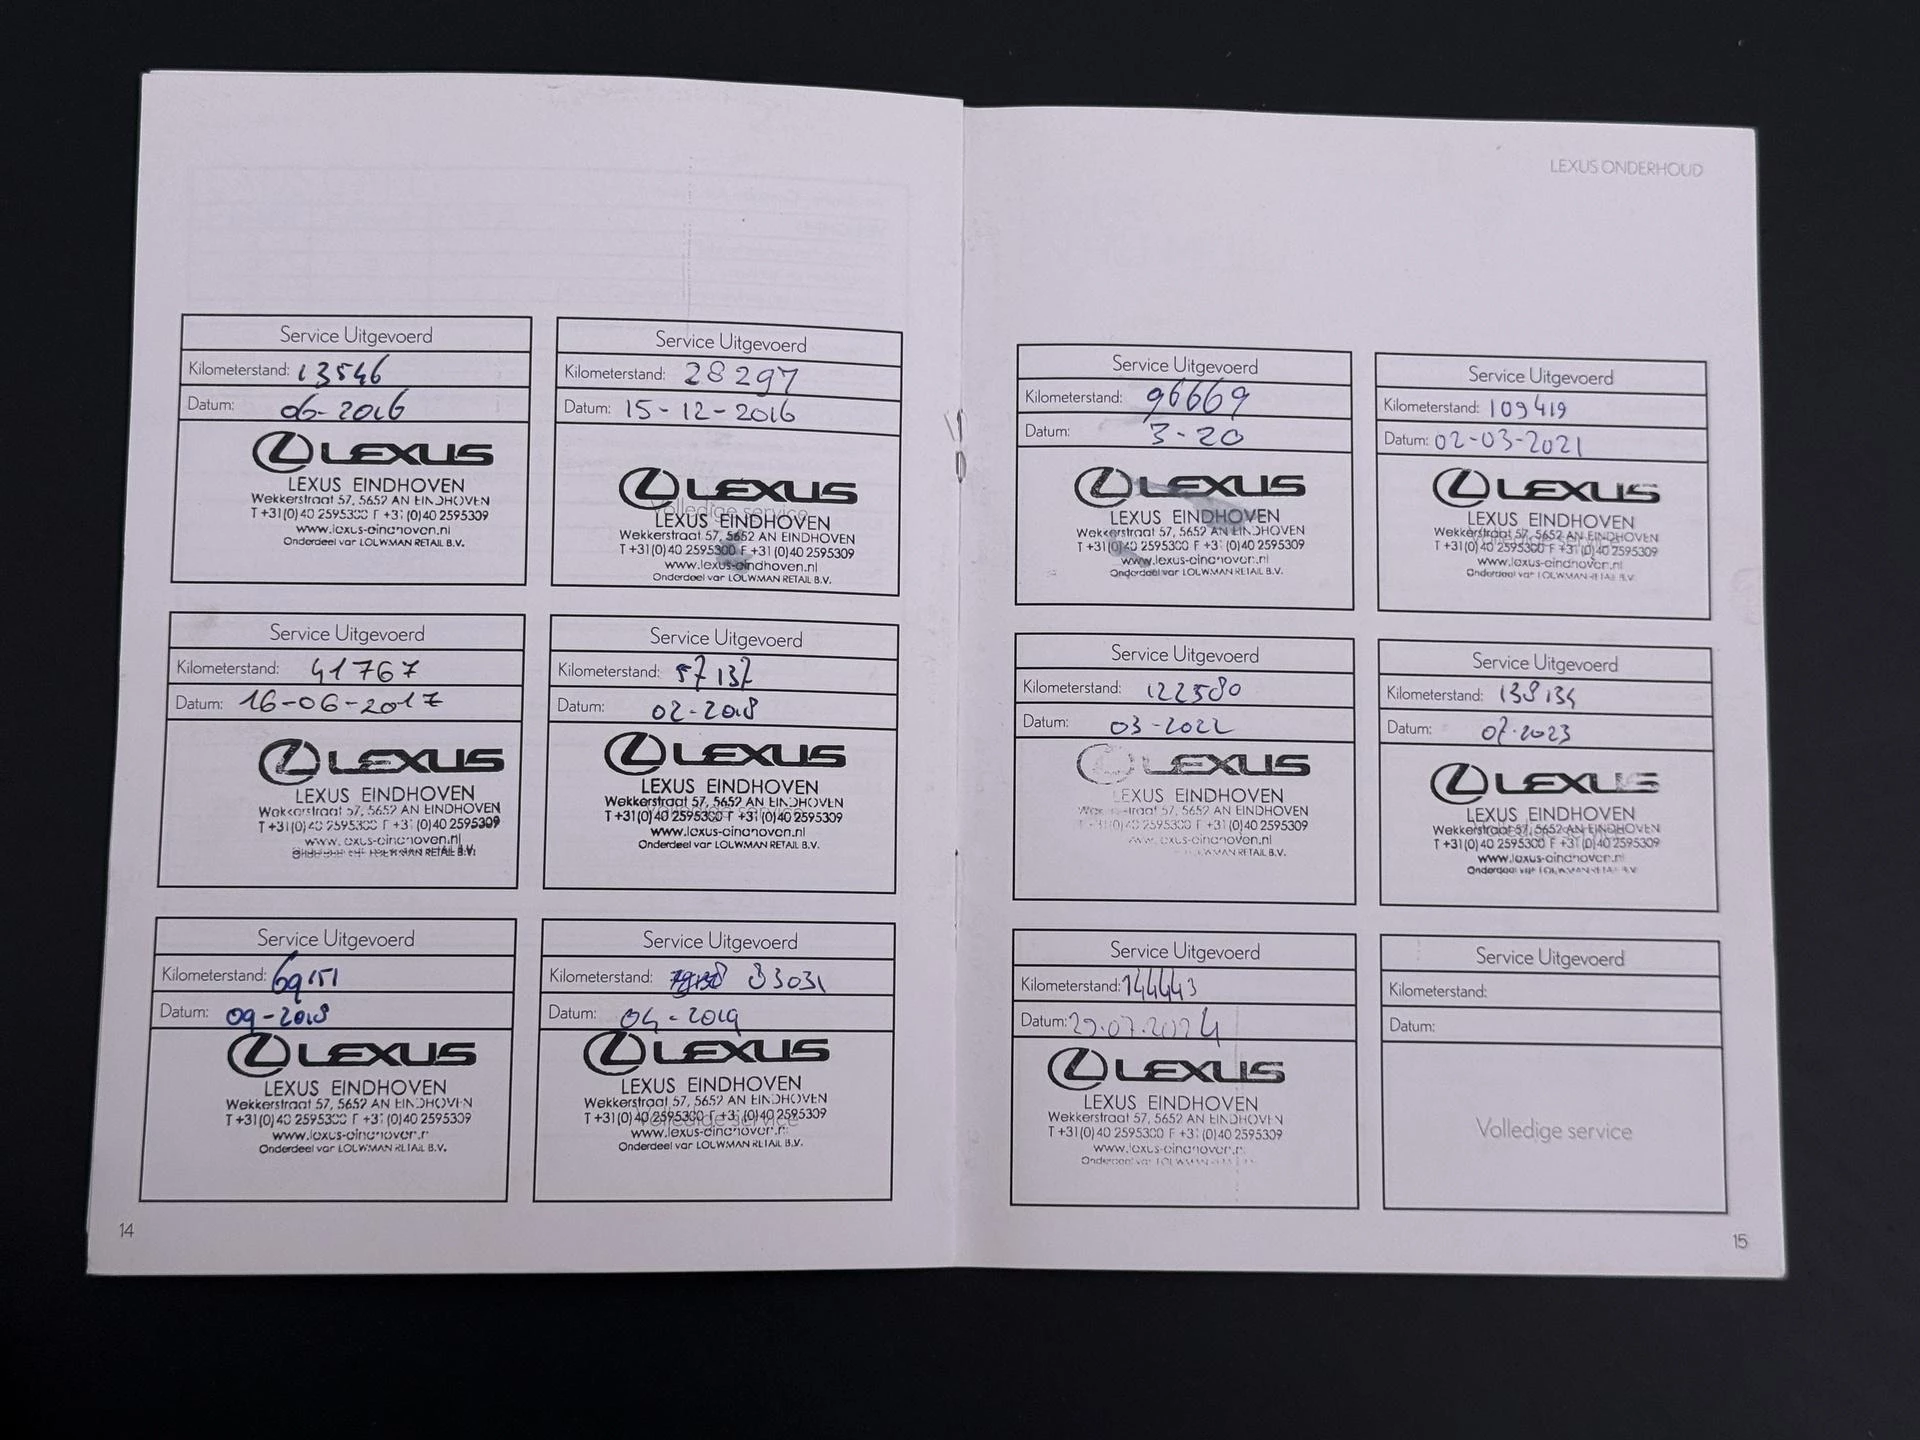 LEXUS ONDERHOUD
Service Uitgevoerd
Kilometerstand: 13546
Datum: 06-2016
LEXUS
LEXUS EINDHOVEN
Wekkerstraat 57, 5652 AN EINDHOVEN
T +31(0)40 2595300 F +31(0)40 2595309
www.lexus-eindhoven.nl
Onderdeel van LOUWMAN RETAIL B.V.
Service Uitgevoerd
Kilometerstand: 28297
Datum: 15-12-2016
LEXUS
Volledige service
LEXUS EINDHOVEN
Wekkerstraat 57, 5652 AN EINDHOVEN
T +31(0)40 2595300 F +31(0)40 2595309
www.lexus-eindhoven.nl
Onderdeel van LOUWMAN RETAIL B.V.
Service Uitgevoerd
Kilometerstand: 41767
Datum: 16-06-2017
LEXUS
LEXUS EINDHOVEN
Wekkerstraat 57, 5652 AN EINDHOVEN
T +31(0)40 2595300 F +31(0)40 2595309
www.lexus-eindhoven.nl
Onderdeel van LOUWMAN RETAIL B.V.
Service Uitgevoerd
Kilometerstand: 57137
Datum: 02-2018
LEXUS
LEXUS EINDHOVEN
Wekkerstraat 57, 5652 AN EINDHOVEN
T +31(0)40 2595300 F +31(0)40 2595309
www.lexus-eindhoven.nl
Onderdeel van LOUWMAN RETAIL B.V.
Service Uitgevoerd
Kilometerstand: 69151
Datum: 09-2018
LEXUS
LEXUS EINDHOVEN
Wekkerstraat 57, 5652 AN EINDHOVEN
T +31(0)40 2595300 F +31(0)40 2595309
www.lexus-eindhoven.nl
Onderdeel van LOUWMAN RETAIL B.V.
Service Uitgevoerd
Kilometerstand: 83031
Datum: 04-2019
LEXUS
LEXUS EINDHOVEN
Wekkerstraat 57, 5652 AN EINDHOVEN
T +31(0)40 2595300 F +31(0)40 2595309
Volledige service
www.lexus-eindhoven.nl
Onderdeel van LOUWMAN RETAIL B.V.
14
Service Uitgevoerd
Kilometerstand: 96669
Datum: 3-20
LEXUS
LEXUS EINDHOVEN
Wekkerstraat 57, 5652 AN EINDHOVEN
T +31(0)40 2595300 F +31(0)40 2595309
www.lexus-eindhoven.nl
Onderdeel van LOUWMAN RETAIL B.V.
Service Uitgevoerd
Kilometerstand: 109419
Datum: 02-03-2021
LEXUS
LEXUS EINDHOVEN
Wekkerstraat 57, 5652 AN EINDHOVEN
T +31(0)40 2595300 F +31(0)40 2595309
www.lexus-eindhoven.nl
Onderdeel van LOUWMAN RETAIL B.V.
Service Uitgevoerd
Kilometerstand: 122580
Datum: 03-2022
LEXUS
LEXUS EINDHOVEN
Wekkerstraat 57, 5652 AN EINDHOVEN
T +31(0)40 2595300 F +31(0)40 2595309
www.lexus-eindhoven.nl
LOUWMAN RETAIL B.V.
Service Uitgevoerd
Kilometerstand: 138134
Datum: 07-2023
LEXUS
LEXUS EINDHOVEN
Wekkerstraat 57, 5652 AN EINDHOVEN
T +31(0)40 2595300 F +31(0)40 2595309
www.lexus-eindhoven.nl
Onderdeel van LOUWMAN RETAIL B.V.
Service Uitgevoerd
Kilometerstand: 144443
Datum: 29.07.2024
LEXUS
LEXUS EINDHOVEN
Wekkerstraat 57, 5652 AN EINDHOVEN
T +31(0)40 2595300 F +31(0)40 2595309
www.lexus-eindhoven.nl
Onderdeel van LOUWMAN
Service Uitgevoerd
Kilometerstand:
Datum:
Volledige service
15